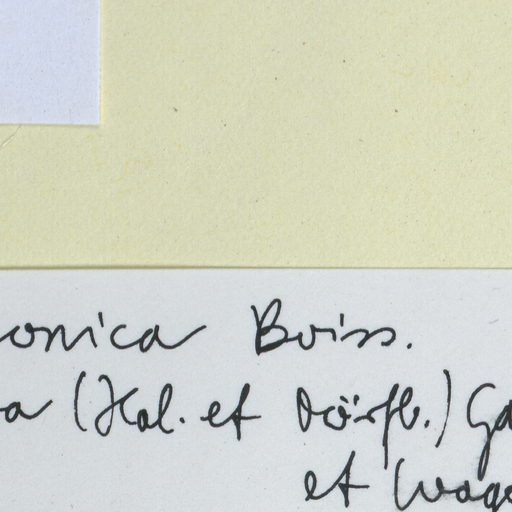 onica Boiss.
a (Hal. et Dörfl.) Ga
et Wage